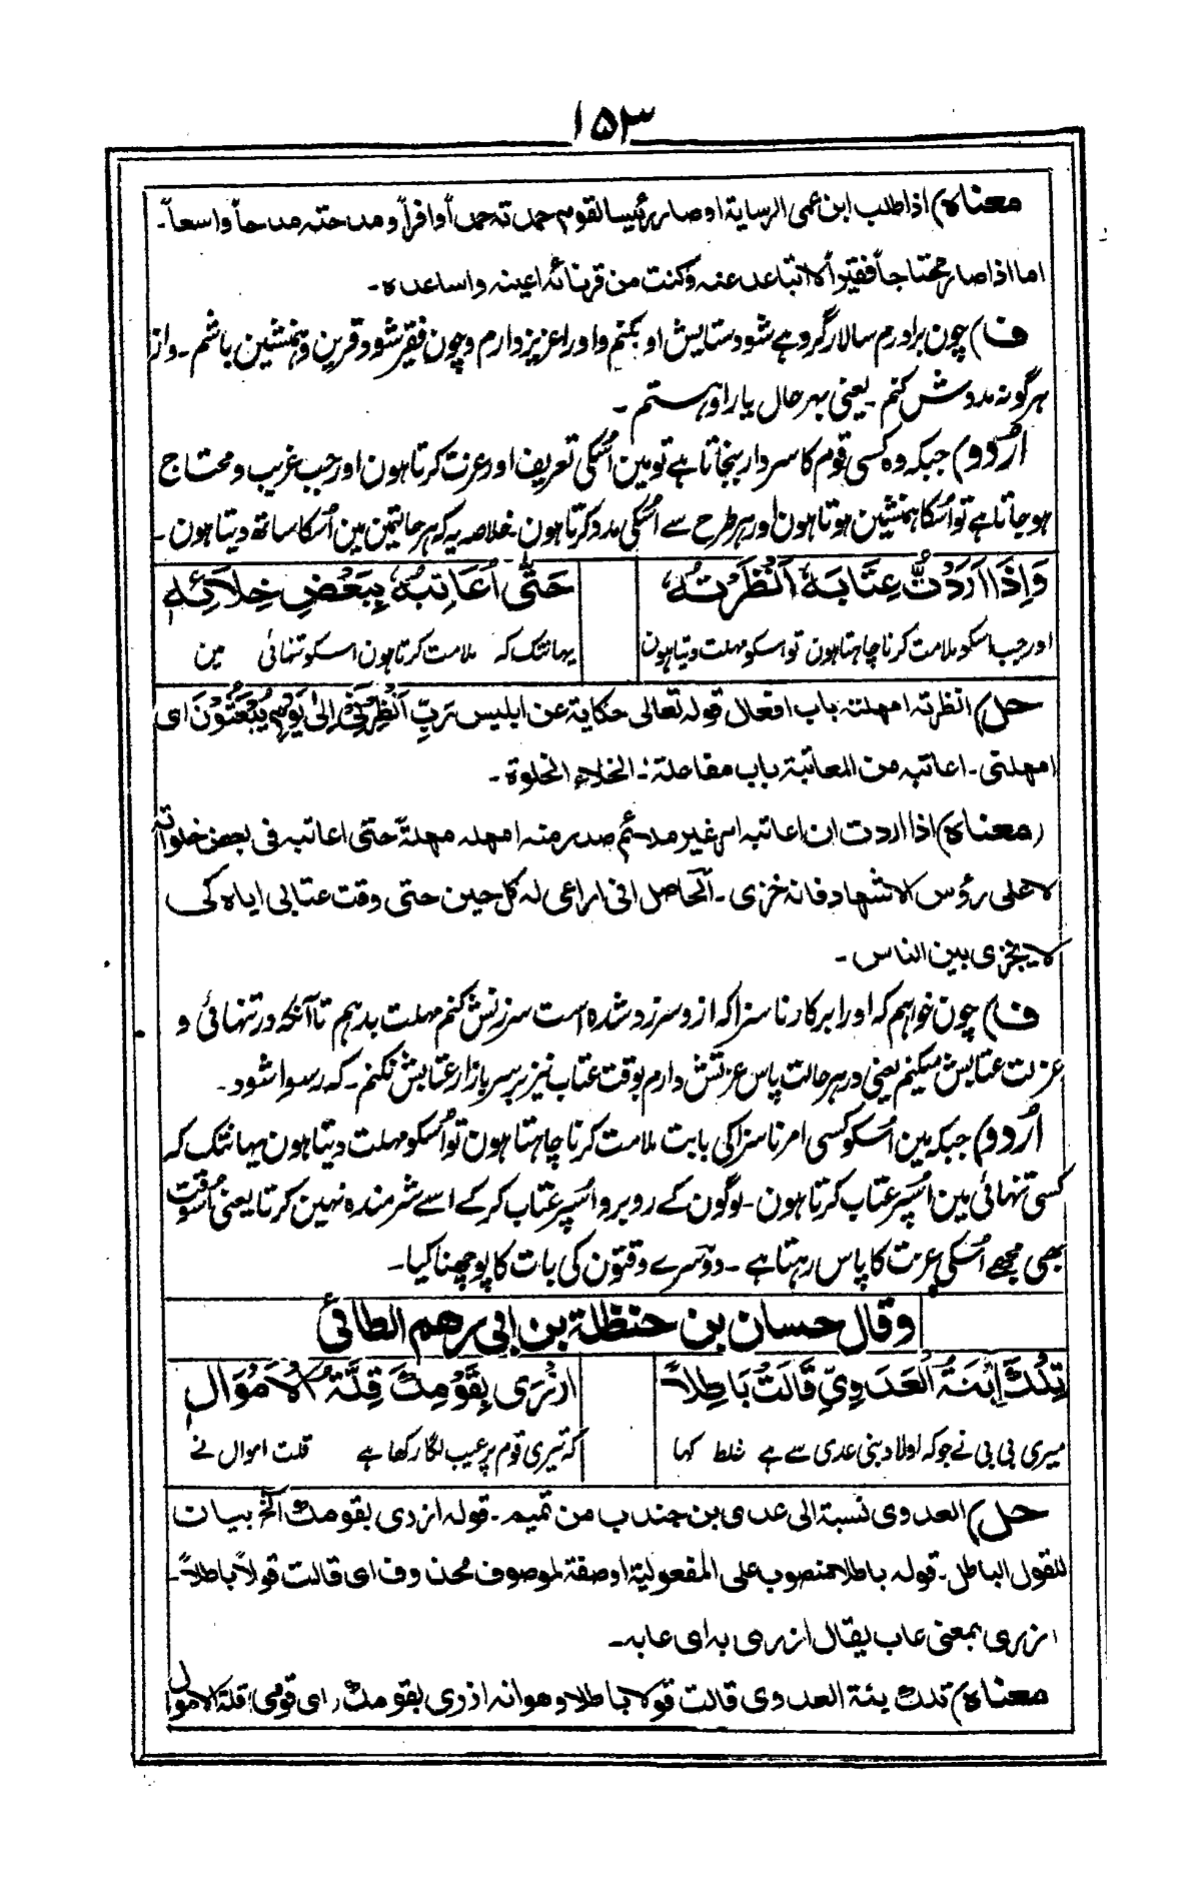 ۱۵۳
معناہ) اذا طلب ابن عمی الرسایة او صار رئیسا لقوم حمدته حمداً وافراً و مدحته مدحاً واسعاً۔
اما اذا صار محتاجاً فقیراً لا اتباعد عنه وکنت من قرنائه اعینه واساعده۔
ف) چون برادرم سالار گروہے شود ستایش او بکنم و او را عزیز دارم و چون فقیر شود قرین و ہمنشین باشم۔ و از
ہرگونہ مددش کنم۔ یعنی بہرحال یار او ہستم۔
اُردو) جبکہ وہ کسی قوم کا سردار بنجاتا ہے تو مین اُسکی تعریف اور عزت کرتا ہون اور جب غریب و محتاج
ہو جاتا ہے تو اُسکا ہمنشین ہوتا ہون اور ہر طرح سے اُسکی مدد کرتا ہون۔ خلاصہ یہ کہ ہر حالتمین مین اُسکا ساتھ دیتا ہون۔
وَاِذَا اَرَدْتُّ عِتَابَهٗ اَنْظَرْتُهٗ حَتّٰی اُعَاتِبُهٗ بِبَعْضِ خِلَائِهٖ
اور جب اسکو ملامت کرنا چاہتا ہون تو اسکو مہلت دیتا ہون یہانتک کہ ملامت کرتا ہون اسکو تنہائی مین
حل) انظرته امهلته باب افعال قوله تعالی حکایة عن ابلیس رَبِّ اَنْظِرْنِیْ اِلٰی یَوْمِ یُبْعَثُوْنَ ای
امهلنی۔ اعاتبه من المعاتبة باب مفاعلة۔ الخلاء الخلوة۔
(معناہ) اذا اردت ان اعاتبه امر غیر ملائم صدر منه امهله مهلةً حتی اعاتبه فی بعض خلواته
لا علی رؤس الاشهاد فانه خزی۔ الحاصل انی اراعی له کل حین حتی وقت عتابی ایاه کی
لا یخزی بین الناس۔
ف) چون خواہم کہ او را بر کار ناسزا کہ از و سرزد شدہ است سرزنش کنم مہلت بدہم تا آنکہ در تنہائی و
عزلت عتابش میکنم یعنی در ہر حالت پاس عزتش دارم بوقت عتاب نیز بر سر بازار عتابش نکنم۔ کہ رسوا شود۔
اُردو) جبکہ مین اُسکو کسی امر ناسزا کی بابت ملامت کرنا چاہتا ہون تو اُسکو مہلت دیتا ہون یہانتک کہ
کسی تنہائی مین اُسپر عتاب کرتا ہون۔ لوگون کے روبرو اُسپر عتاب کرکے اسے شرمندہ نہین کرتا یعنی اُسوقت
بھی مجھے اُسکی عزت کا پاس رہتا ہے۔ دوسرے وقتون کی بات کا پوچھنا کیا۔
وقال حسان بن حنظلة بن ابی رهم الطائی
تِلْكَ ابْنَةُ الْعَدَوِیِّ قَالَتْ بَاطِلاً ازْرٰی بِقَوْمِكَ قِلَّةُ الْاَمْوَالِ
میری بی بی نے جو کہ اولاد بنی عدی سے ہے غلط کہا کہ تیری قوم پر عیب لگا رکھا ہے قلت اموال نے
حل) العدوی نسبة الی عدی بن جندب من تمیم۔ قوله ازری بقومك الخ بیان
للقول الباطل۔ قوله باطلا منصوب علی المفعولیة او صفة لموصوف محذوف ای قالت قولاً باطلاً۔
ازری بمعنی عاب یقال ازری به ای عابه۔
معناہ) تلك بنة العدوی قالت قولا باطلا و هو انه ازری بقومك ای قومی قلة الاموال